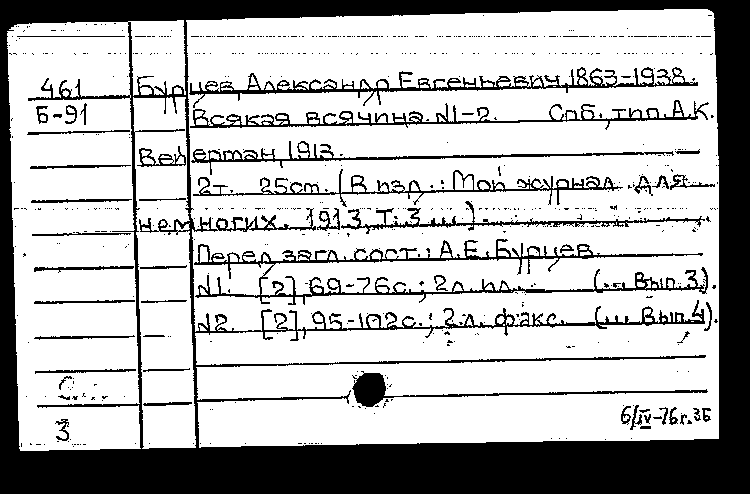 461 Бурцев, Александр Евгеньевич, 1863-1938.
Б-91 Всякая всячина. N1-2. Спб., тип. А.К.
Вейерман, 1913.
2т. 25cm. (В изд.: Мой журнал для
немногих. 1913, Т. 3 ...).
Перед загл. сост.: А.Е. Бурцев.
N1. [2], 69-76с.; 2л. ил. (... Вып. 3).
N2. [2], 95-102с.; 2л. факс. (... Вып. 4).
3
6/IV-76г. ЗБ